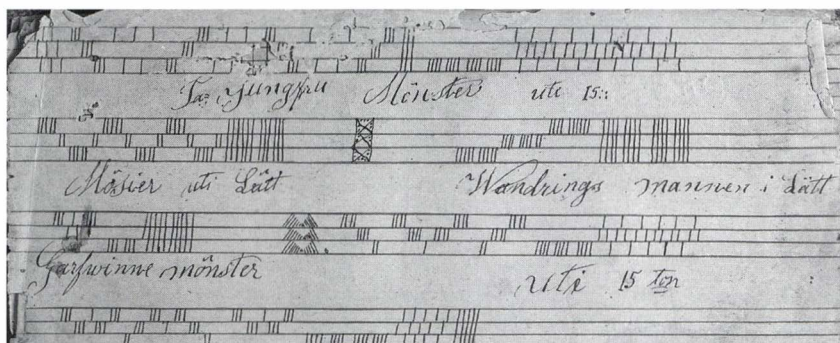 Jungfru Mönster ute 15::
Mösier uti Lätt Wandrings mannen i Lätt
Garfwinne mönster uti 15 ton